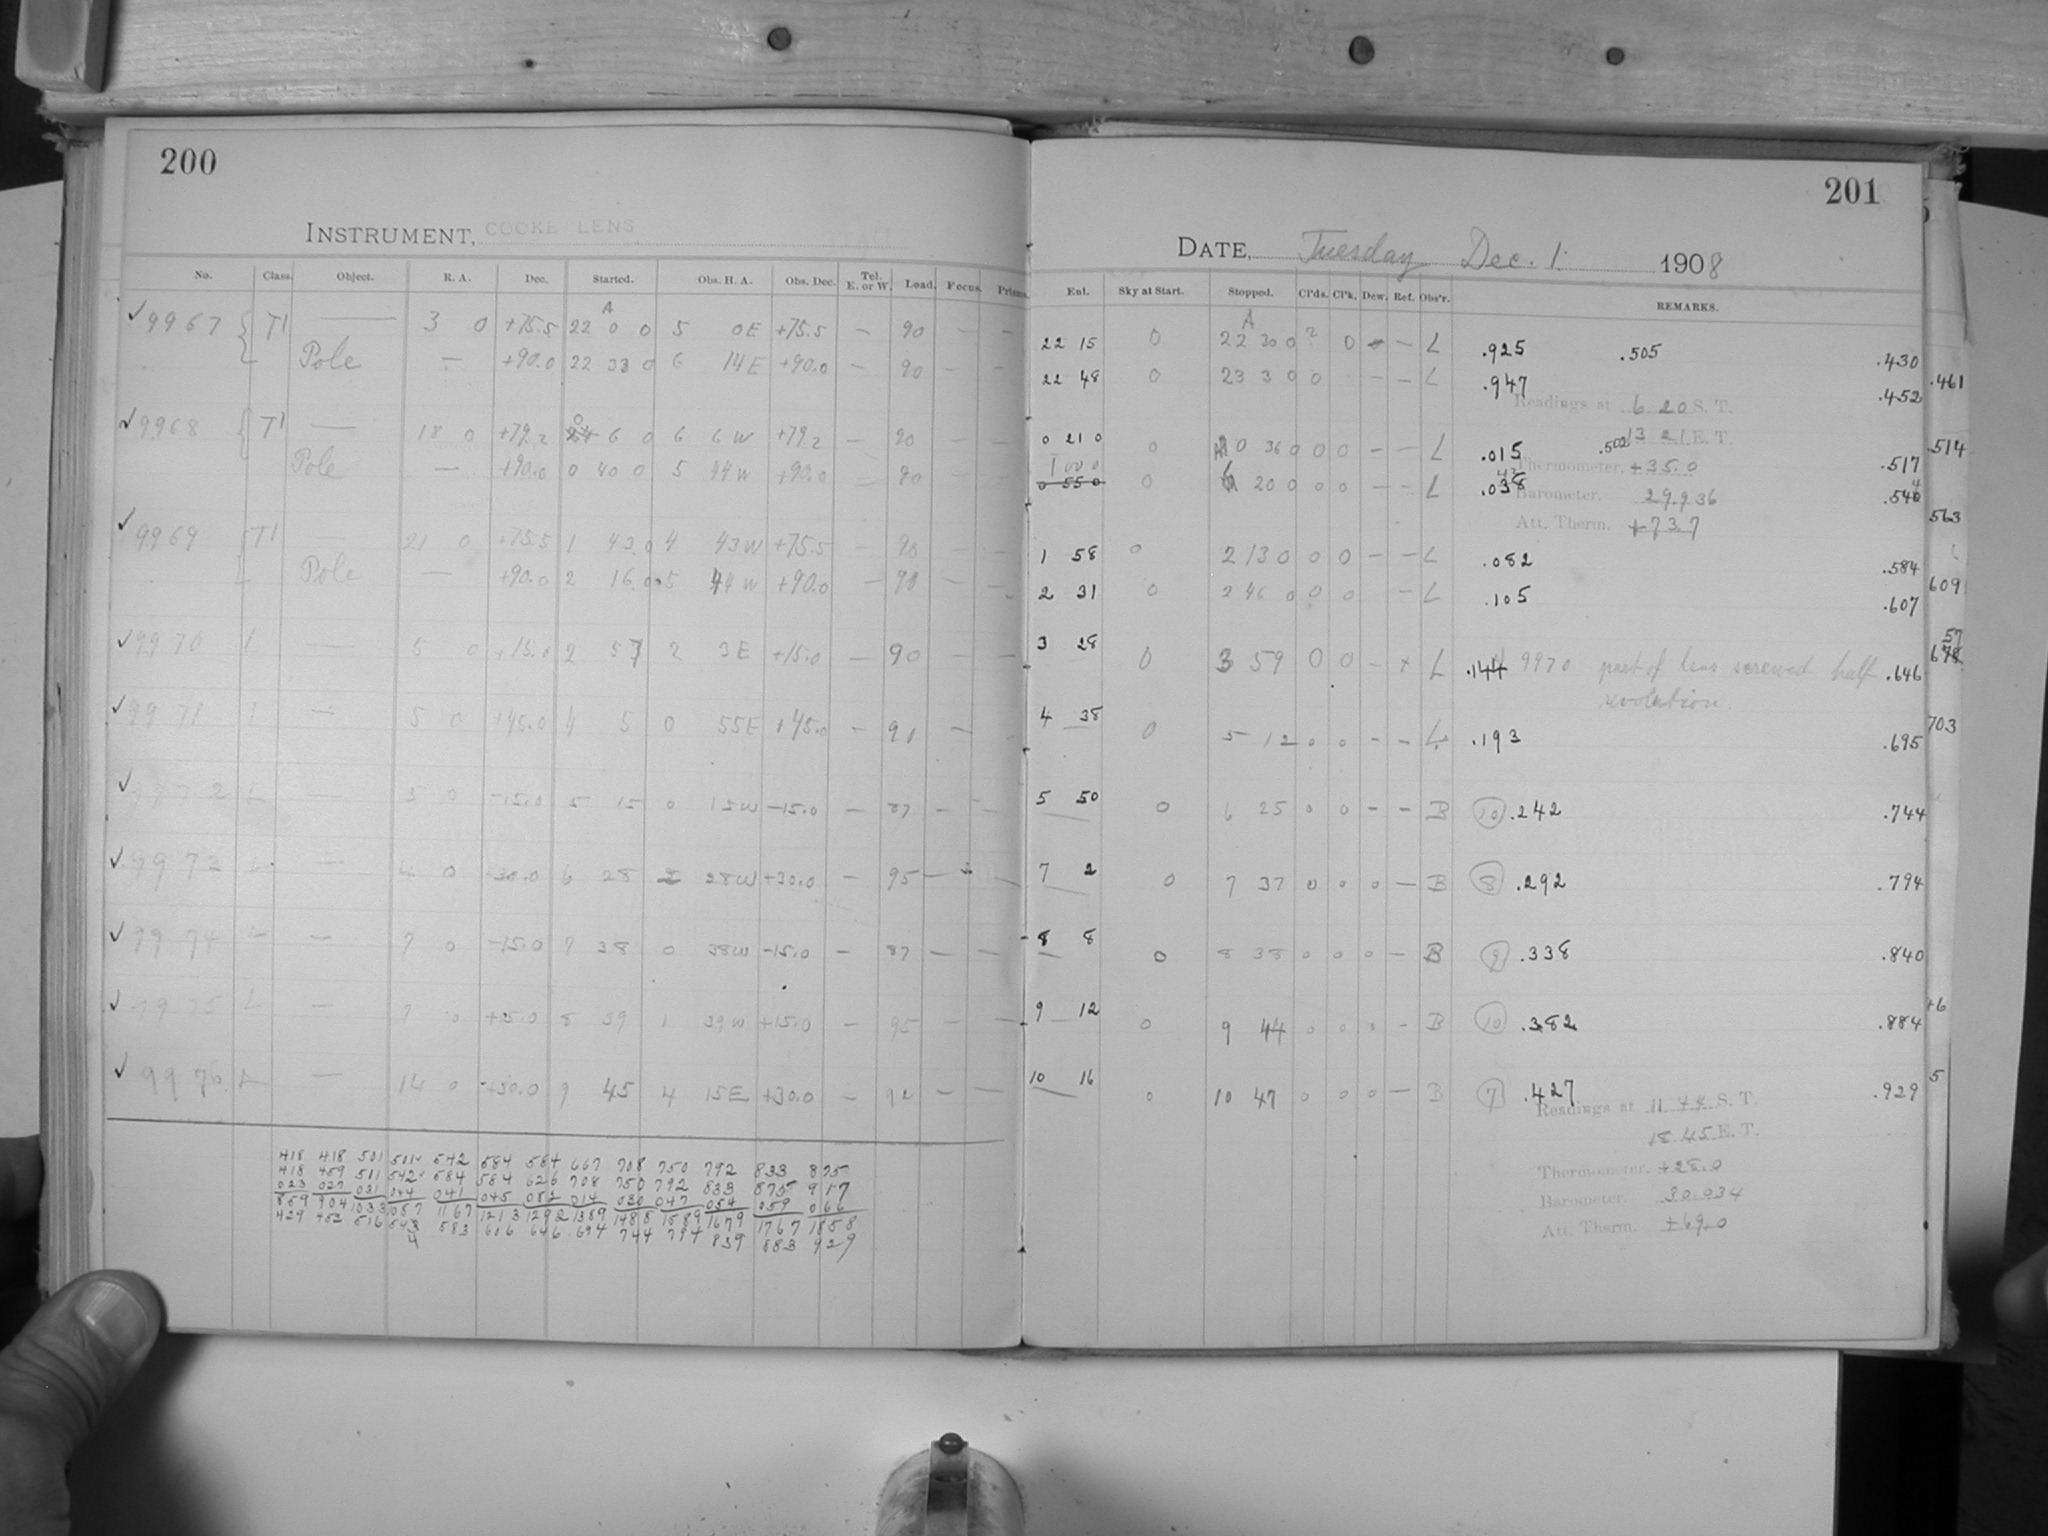 200
INSTRUMENT, COOKE LENS
No. Class. Object. R. A. Dec. Started. Obs. H. A. Obs. Dec. Tel. E. or W. Load. Focus. Prisms.
A
9967 T1 — 3 0 +75.5 22 0 0 5 0E +75.5 — 90 — —
Pole — +90.0 22 33 0 6 14E +90.0 — 90 — —
9968 T1 — 18 0 +79.2 0 6 0 6 6W +79.2 — 90 — —
Pole — +90.0 0 40 0 5 44W +90.0 — 90 — —
9969 T1 — 21 0 +75.5 1 43.0 4 43W +75.5 — 90 — —
Pole — +90.0 2 16.0 5 44W +90.0 — 90 — —
9970 L — 5 0 +15.0 2 57 2 3E +15.0 — 90 — —
9971 — 5 0 +45.0 4 5 0 55E +45.0 — 91 — —
9972 L — 5 0 -15.0 5 15 0 15W -15.0 — 87 — —
9973 L — 0 6 28 28W +30.0 — 95 —
9974 L — 7 0 -15.0 7 38 0 38W -15.0 — 87 — —
9975 L — 7 0 +15.0 8 39 1 39W +15.0 — 95 — —
9976 L — 14 0 +30.0 9 45 4 15E +30.0 — 92 — —
418 418 501 501 542 584 584 667 708 750 792 833 875
418 459 511 542 584 584 626 708 750 792 833 875 917
023 027 021 044 041 045 082 014 030 047 054 059 066
859 904 1033 087 1167 1213 1292 1389 1488 1589 1679 1767 1858
429 452 516 543 583 606 646 694 744 794 839 883 929
4
201
DATE, Tuesday Dec. 1. 1908
Ent. Sky at Start. Stopped. Cl'ds. Cl'k. Dew. Ref. Obs'r. REMARKS.
A
22 15 0 22 30 0 ? 0 — L .925 .505 .430
22 48 0 23 3 0 0 — — L .947 .452 .461
Readings at 6 20 S. T.
13 21 E. T.
0 21 0 0 0 36 0 0 0 — — L .015 .502 .517 .514
Thermometer, +35.0
1 00 0
0 55 0 0 20 0 0 0 — — L .038 .540
Barometer. 29.936
Att. Therm. +73.7 563
1 58 0 2 13 0 0 0 — — L .082 .584
2 31 0 2 46 0 0 0 — L .105 .607 609
3 28 0 3 59 0 0 — + L .144 9970 part of lens screwed half .646 57
revolution.
4 38 0 5 12 0 0 — — L .193 .695 703
5 50 0 6 25 0 0 — — B 10 .242 .744
7 2 0 7 37 0 0 0 — B 8 .292 .794
8 8 0 8 38 0 0 0 — B 9 .338 .840
9 12 0 9 44 0 0 0 — B 10 .382 .884 +6
10 16 0 10 47 0 0 0 — B 7 .427 .929 5
Readings at 11 44 S. T.
18 45 E. T.
Thermometer. +28.0
Barometer. 30.034
Att. Therm. +69.0